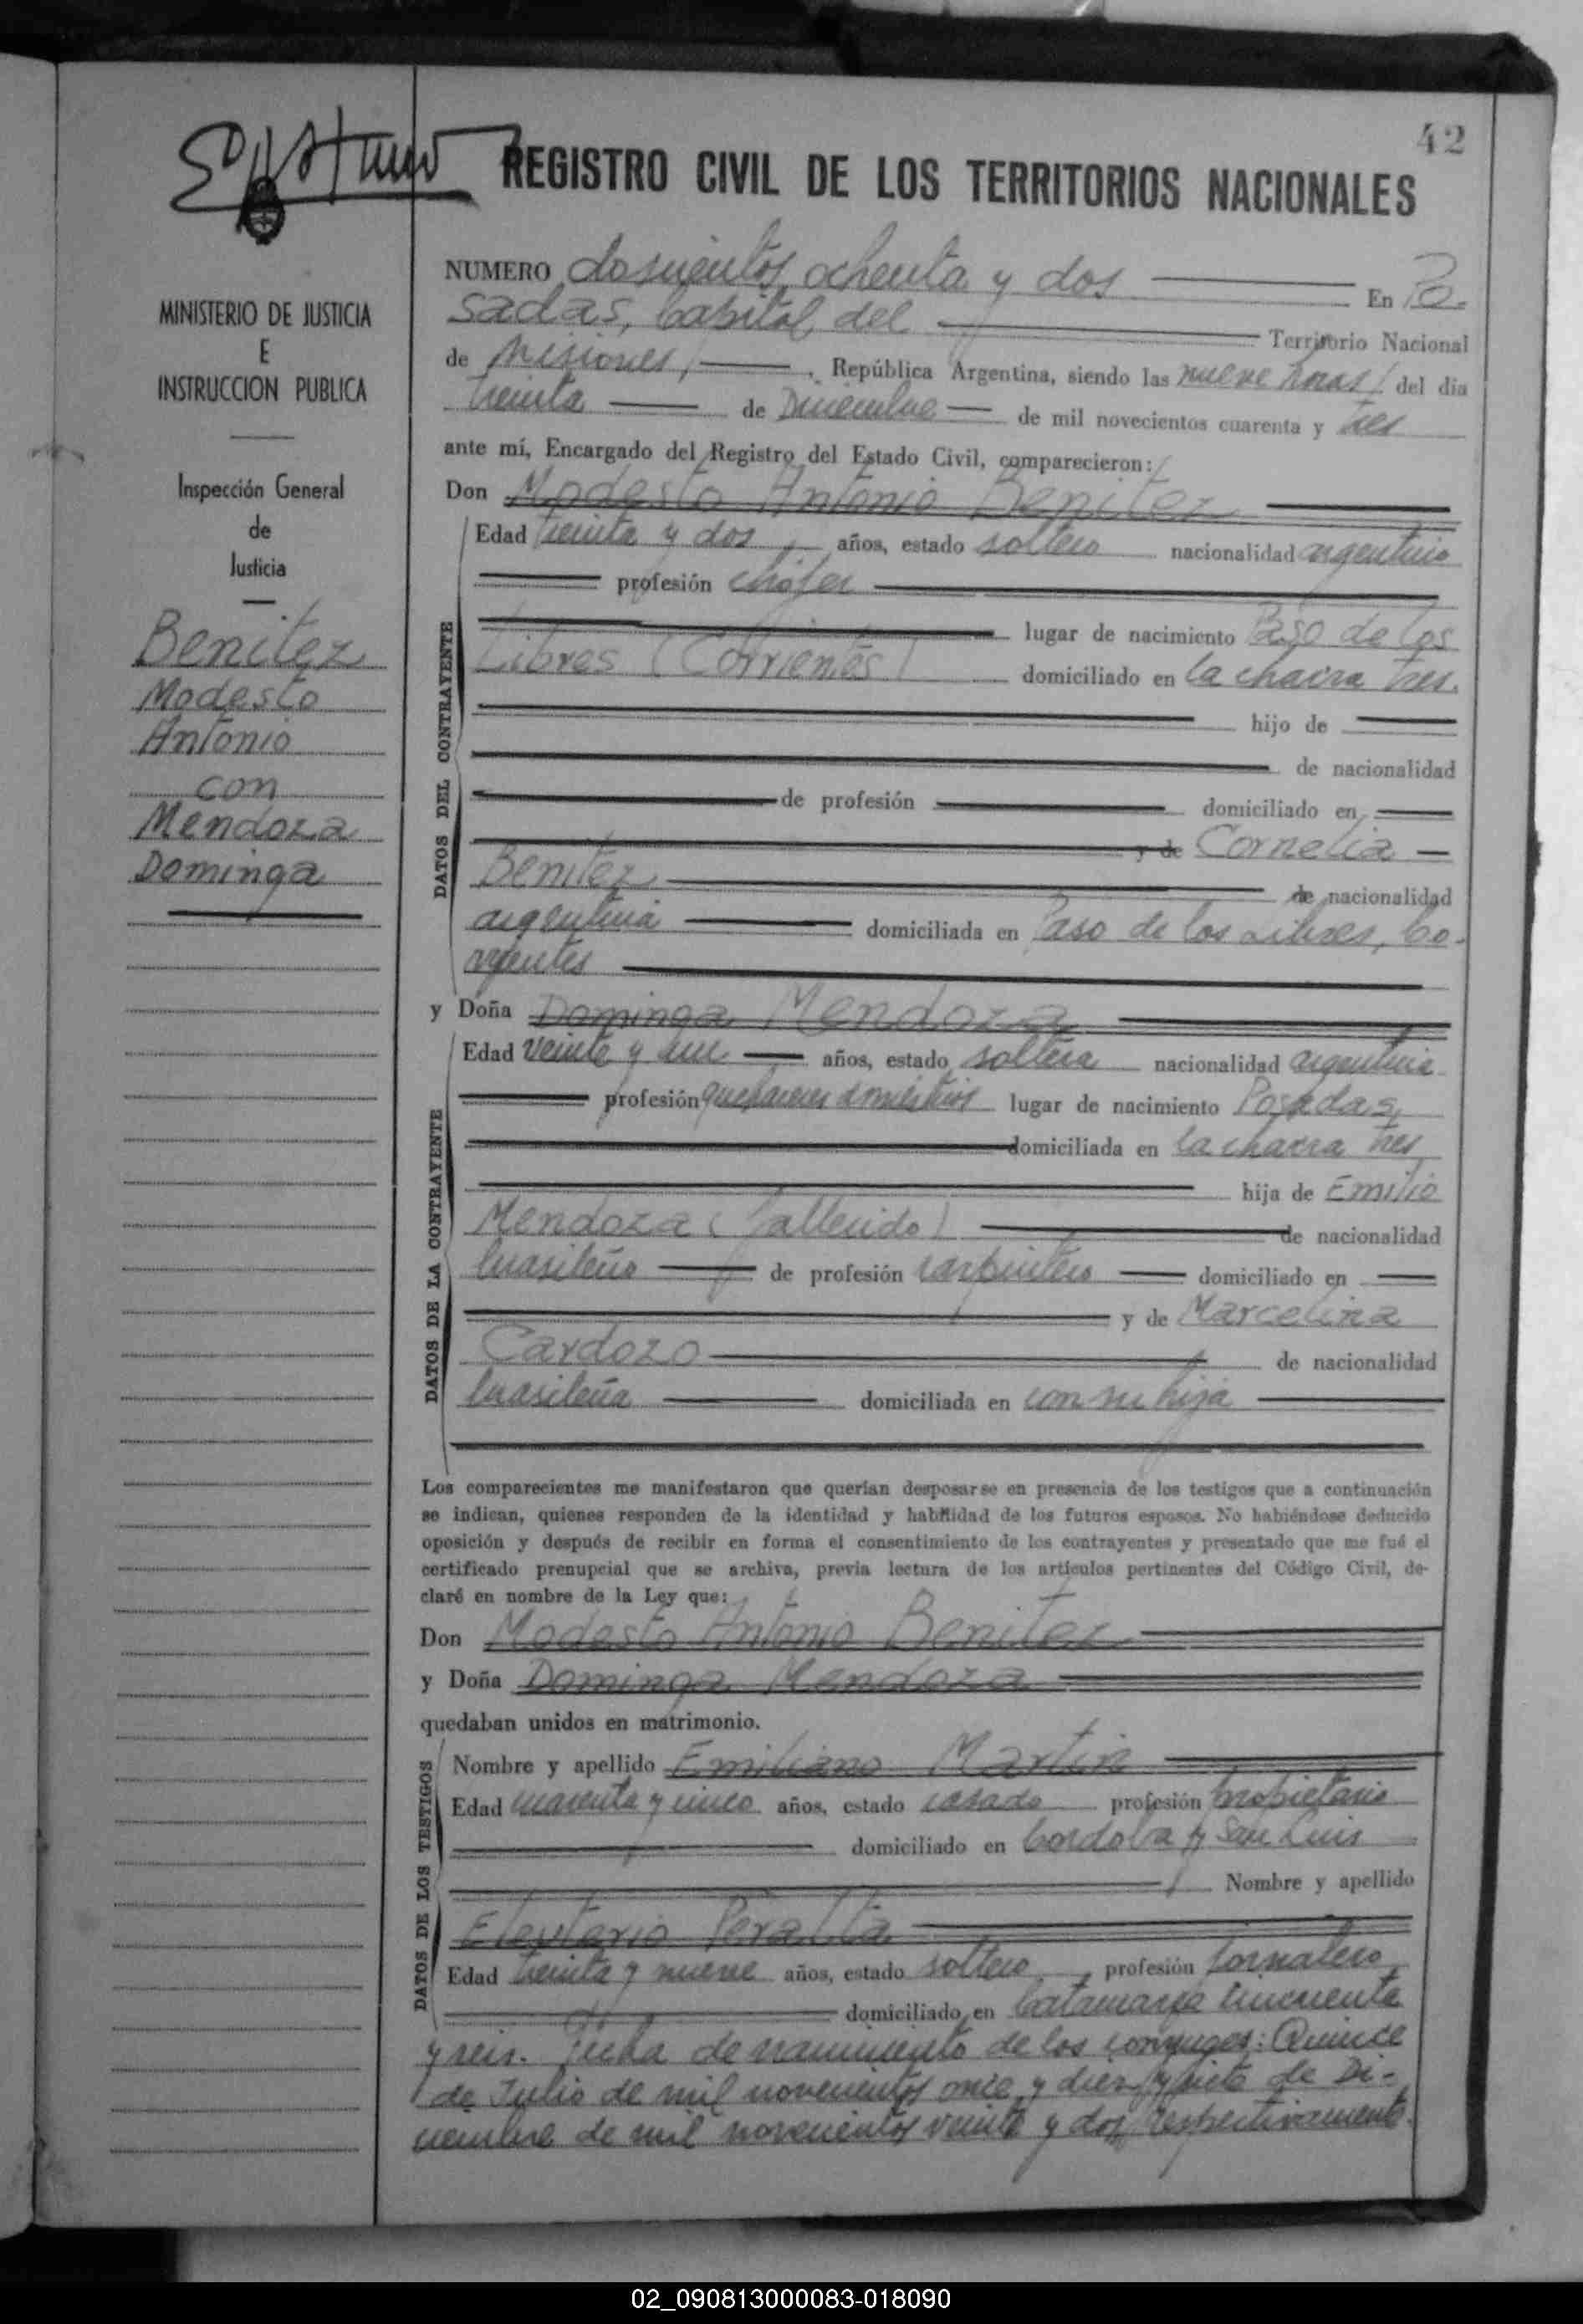 42
REGISTRO CIVIL DE LOS TERRITORIOS NACIONALES
MINISTERIO DE JUSTICIA
E
INSTRUCCION PUBLICA
Inspección General
de
Justicia
Benitez
Modesto
Antonio
con
Mendoza
Dominga
NUMERO doscientos ochenta y dos En Po-
sadas, Capital del Territorio Nacional
de Misiones, República Argentina, siendo las nueve horas del día
treinta de Diciembre de mil novecientos cuarenta y tres
ante mí, Encargado del Registro del Estado Civil, comparecieron:
Don Modesto Antonio Benitez
DATOS DEL CONTRAYENTE
Edad treinta y dos años, estado soltero nacionalidad argentino
profesión chófer
lugar de nacimiento Paso de los
Libres (Corrientes) domiciliado en la chacra tres.
hijo de
de nacionalidad
de profesión domiciliado en
y de Cornelia
Benitez de nacionalidad
argentina domiciliada en Paso de los Libres, Co-
rrientes
y Doña Dominga Mendoza
DATOS DE LA CONTRAYENTE
Edad veinte y un años, estado soltera nacionalidad argentina
profesión quehaceres domésticos lugar de nacimiento Posadas,
domiciliada en la chacra tres
hija de Emilio
Mendoza (fallecido) de nacionalidad
brasileño de profesión carpintero domiciliado en
y de Marcelina
Cardozo de nacionalidad
brasileña domiciliada en con su hija
Los comparecientes me manifestaron que querían desposarse en presencia de los testigos que a continuación
se indican, quienes responden de la identidad y habilidad de los futuros esposos. No habiéndose deducido
oposición y después de recibir en forma el consentimiento de los contrayentes y presentado que me fué el
certificado prenupcial que se archiva, previa lectura de los artículos pertinentes del Código Civil, de-
claré en nombre de la Ley que:
Don Modesto Antonio Benitez
y Doña Dominga Mendoza
quedaban unidos en matrimonio.
DATOS DE LOS TESTIGOS
Nombre y apellido Emiliano Martin
Edad cuarenta y cinco años, estado casado profesión propietario
domiciliado en Cordoba y San Luis
Nombre y apellido
Eleuterio Peralta
Edad treinta y nueve años, estado soltero, profesión jornalero,
domiciliado en Catamarca cincuenta
y seis. Fecha de nacimiento de los conyuges: Quince
de Julio de mil novecientos once y diez y siete de Di-
ciembre de mil novecientos veinte y dos, respectivamente.
02_090813000083-018090